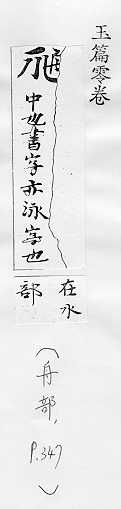 玉篇零卷
中也書字亦泳字也
在水
部
(舟部,
P.347)